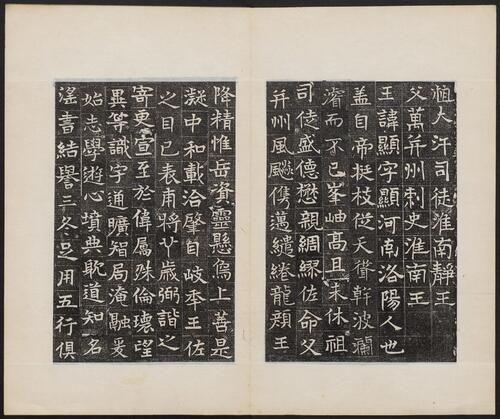 大汗司徒淮南靜王
父萬并州刺史淮南王
王諱顯字顯河南洛陽人也
蓋自帝挺枝從天聳幹波瀾
濬而不已峯岫高且未休祖
司徒盛德懋親綢繆佐命父
并州風飈儁邁繾綣龍顏王
降精惟岳資靈懸鳥上善是
凝中和載洽肇自岐夲王佐
之目已表甫將廿歲弼諧之
寄更宣至於偉屬殊倫瓌望
異等識宇通曠智局淹融爰
始志學遊心墳典耽道知名
滛書結譽三冬足用五行俱